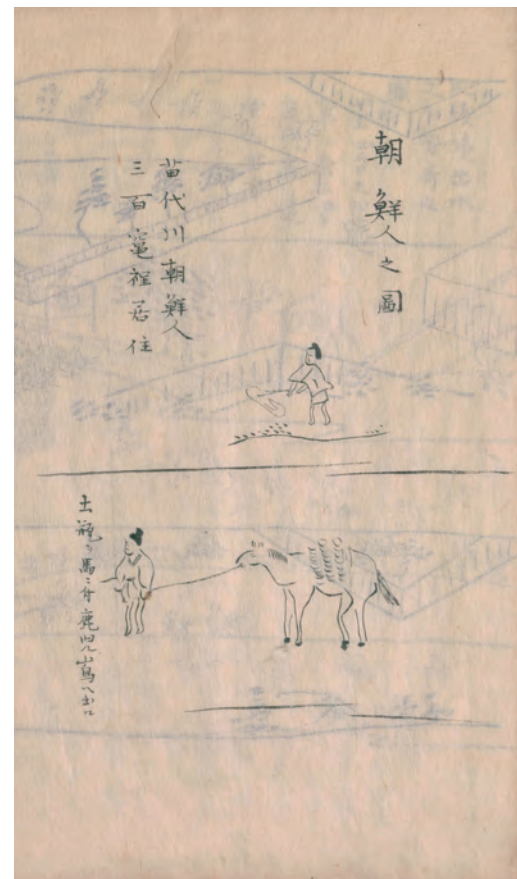 朝鮮人之圖
苗代川朝鮮人
三百竃程居住
土瓶ヲ馬ニ付鹿児嶌ヘ出ス